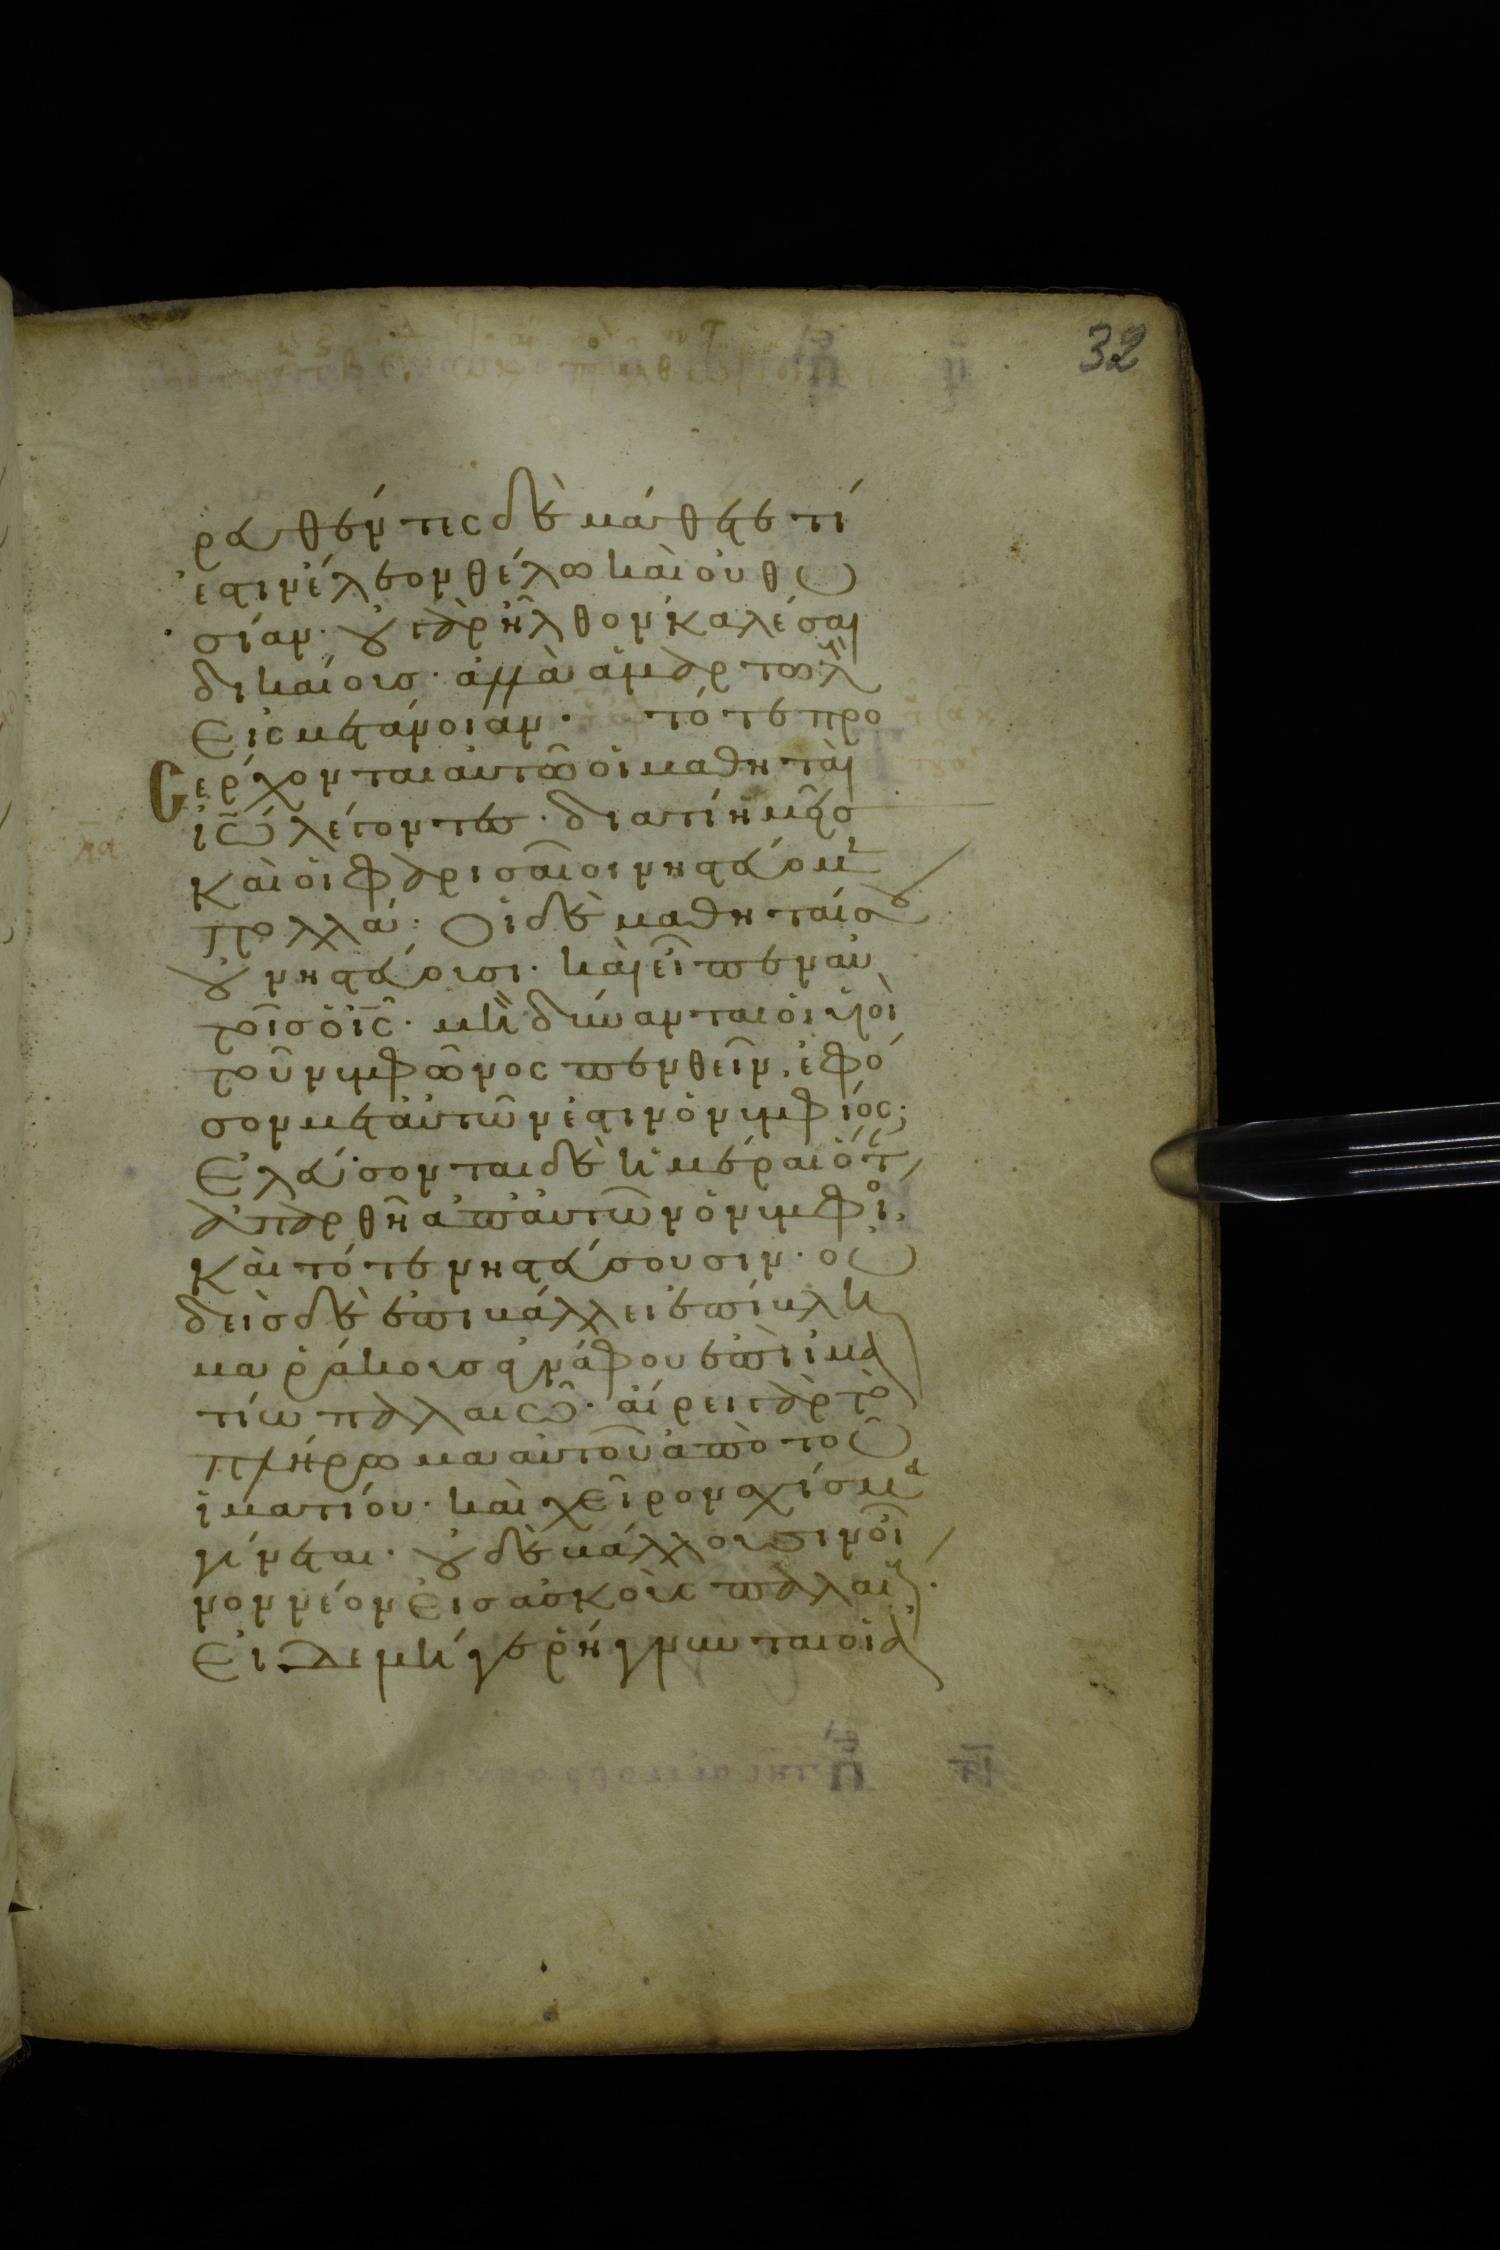 32
ρευθέντες δὲ μάθετε τί
ἐστιν ἔλεον θέλω καὶ οὐ θυ
σίαν· οὐ γὰρ ἦλθον καλέσαι
δικαίους· ἀλλὰ ἁμαρτωλ
εἰς μετάνοιαν· τότε προ
σέρχονται αὐτῶ οἱ μαθηταὶ
ἰω λέγοντες· διατί ἡμεῖς
καὶ οἱ φαρισαῖοι νηστεύομ
πολλά· οἱ δὲ μαθηταί σου
οὐ νηστεύουσι· καὶ εἶπεν αὐ
τοῖς ὁ ις· μὴ δύνανται οἱ υἱοὶ
τοῦ νυμφῶνος πενθεῖν, ἐφό
σον μετ αὐτῶν ἐστιν ὁ νυμφίος·
ἐλεύσονται δὲ ἡμέραι ὅτ
ἀπαρθῆ ἀπ αὐτῶν ὁ νυμφίο,
καὶ τότε νηστεύσουσιν· οὐ
δεὶς δὲ ἐπιβάλλει ἐπίβλη
μα ῥάκους ἀγνάφου ἐπὶ ἱμα
τίω παλαιῶ· αἴρει γὰρ τὸ
πλήρωμα αὐτοῦ ἀπὸ τοῦ
ἱματίου· καὶ χεῖρον σχίσμα
γίνεται· οὐ δὲ βάλλουσιν οἶ
νον νέον εἰς ἀσκοὺς παλαιούς·
εἰ δὲ μήγε ῥήγνυνται οἱ ἀ